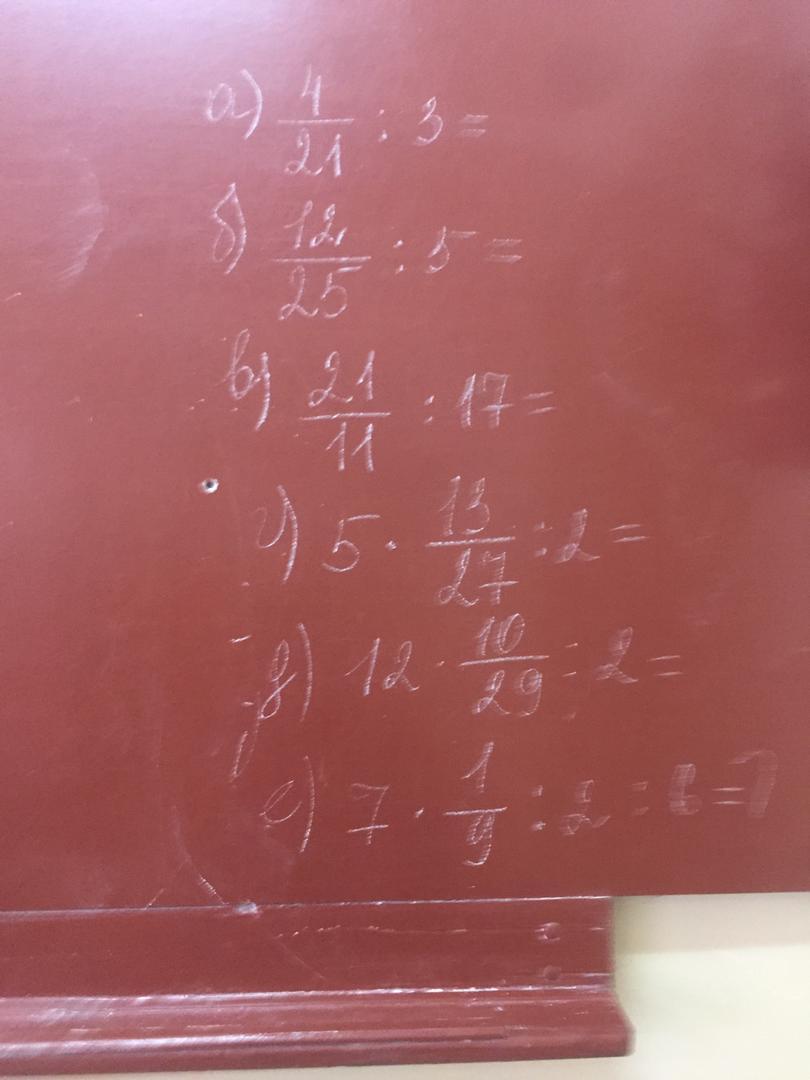 а) 4/21 : 3 =
б) 12/25 : 5 =
в) 21/11 : 17 =
г) 5 · 13/27 : 2 =
д) 12 · 10/29 : 2 =
е) 7 · 1/9 : 2 :